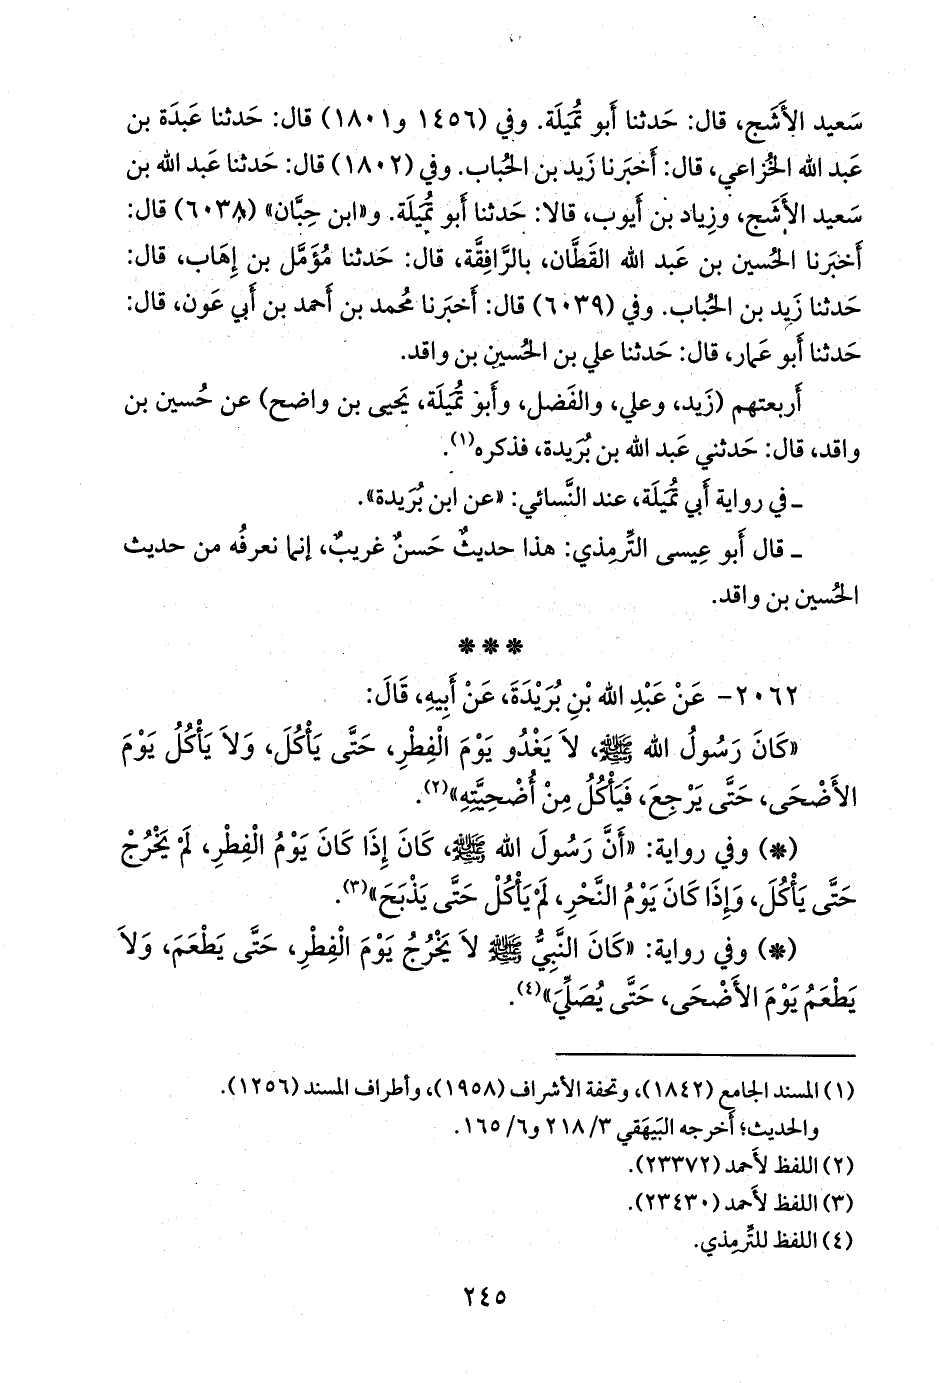 سَعيد الأَشَج، قال: حَدثنا أَبو تُمَيلَة. وفي (١٤٥٦ و١٨٠١) قال: حَدثنا عَبدَة بن
عَبد الله الخُزاعي، قال: أَخبَرنا زَيد بن الحُباب. وفي (١٨٠٢) قال: حَدثنا عَبد الله بن
سَعيد الأَشَج، وزِياد بن أَيوب، قالا: حَدثنا أَبو تُمَيلَة. و«ابن حِبَّان» (٦٠٣٨) قال:
أَخبَرنا الحُسين بن عَبد الله القَطَّان، بالرَّافِقَّة، قال: حَدثنا مُؤَمَّل بن إِهَاب، قال:
حَدثنا زَيد بن الحُباب. وفي (٦٠٣٩) قال: أَخبَرنا مُحمد بن أَحمد بن أَبي عَون، قال:
حَدثنا أَبو عَمار، قال: حَدثنا علي بن الحُسين بن واقد.
أَربعتهم (زَيد، وعلي، والفَضل، وأَبو تُمَيلَة، يَحيى بن واضح) عن حُسين بن
واقد، قال: حَدثني عَبد الله بن بُرَيدة، فذكره(١).
ـ في رواية أَبي تُمَيلَة، عند النَّسائي: «عن ابن بُرَيدة».
ـ قال أَبو عِيسى التِّرمِذي: هذا حديثٌ حَسنٌ غريبٌ، إِنما نعرفُه من حديث
الحُسين بن واقد.
***
٢٠٦٢- عَنْ عَبْدِ الله بْنِ بُرَيْدَةَ، عَنْ أَبِيهِ، قَالَ:
«كَانَ رَسُولُ الله ﷺ، لاَ يَغْدُو يَوْمَ الْفِطْرِ، حَتَّى يَأْكُلَ، وَلاَ يَأْكُلُ يَوْمَ
الأَضْحَى، حَتَّى يَرْجِعَ، فَيَأْكُلُ مِنْ أُضْحِيَّتِهِ»(٢).
(*) وفي رواية: «أَنَّ رَسُولَ الله ﷺ، كَانَ إِذَا كَانَ يَوْمُ الْفِطْرِ، لَمْ يَخْرُجْ
حَتَّى يَأْكُلَ، وَإِذَا كَانَ يَوْمُ النَّحْرِ، لَمْ يَأْكُلْ حَتَّى يَذْبَحَ»(٣).
(*) وفي رواية: «كَانَ النَّبِيُّ ﷺ لاَ يَخْرُجُ يَوْمَ الْفِطْرِ، حَتَّى يَطْعَمَ، وَلاَ
يَطْعَمُ يَوْمَ الأَضْحَى، حَتَّى يُصَلِّيَ»(٤).
(١) المسند الجامع (١٨٤٢)، وتحفة الأشراف (١٩٥٨)، وأطراف المسند (١٢٥٦).
والحديث؛ أَخرجه البَيهَقي ٣/ ٢١٨ و٦/ ١٦٥.
(٢) اللفظ لأَحمد (٢٣٣٧٢).
(٣) اللفظ لأَحمد (٢٣٤٣٠).
(٤) اللفظ للتِّرمِذي.
٢٤٥